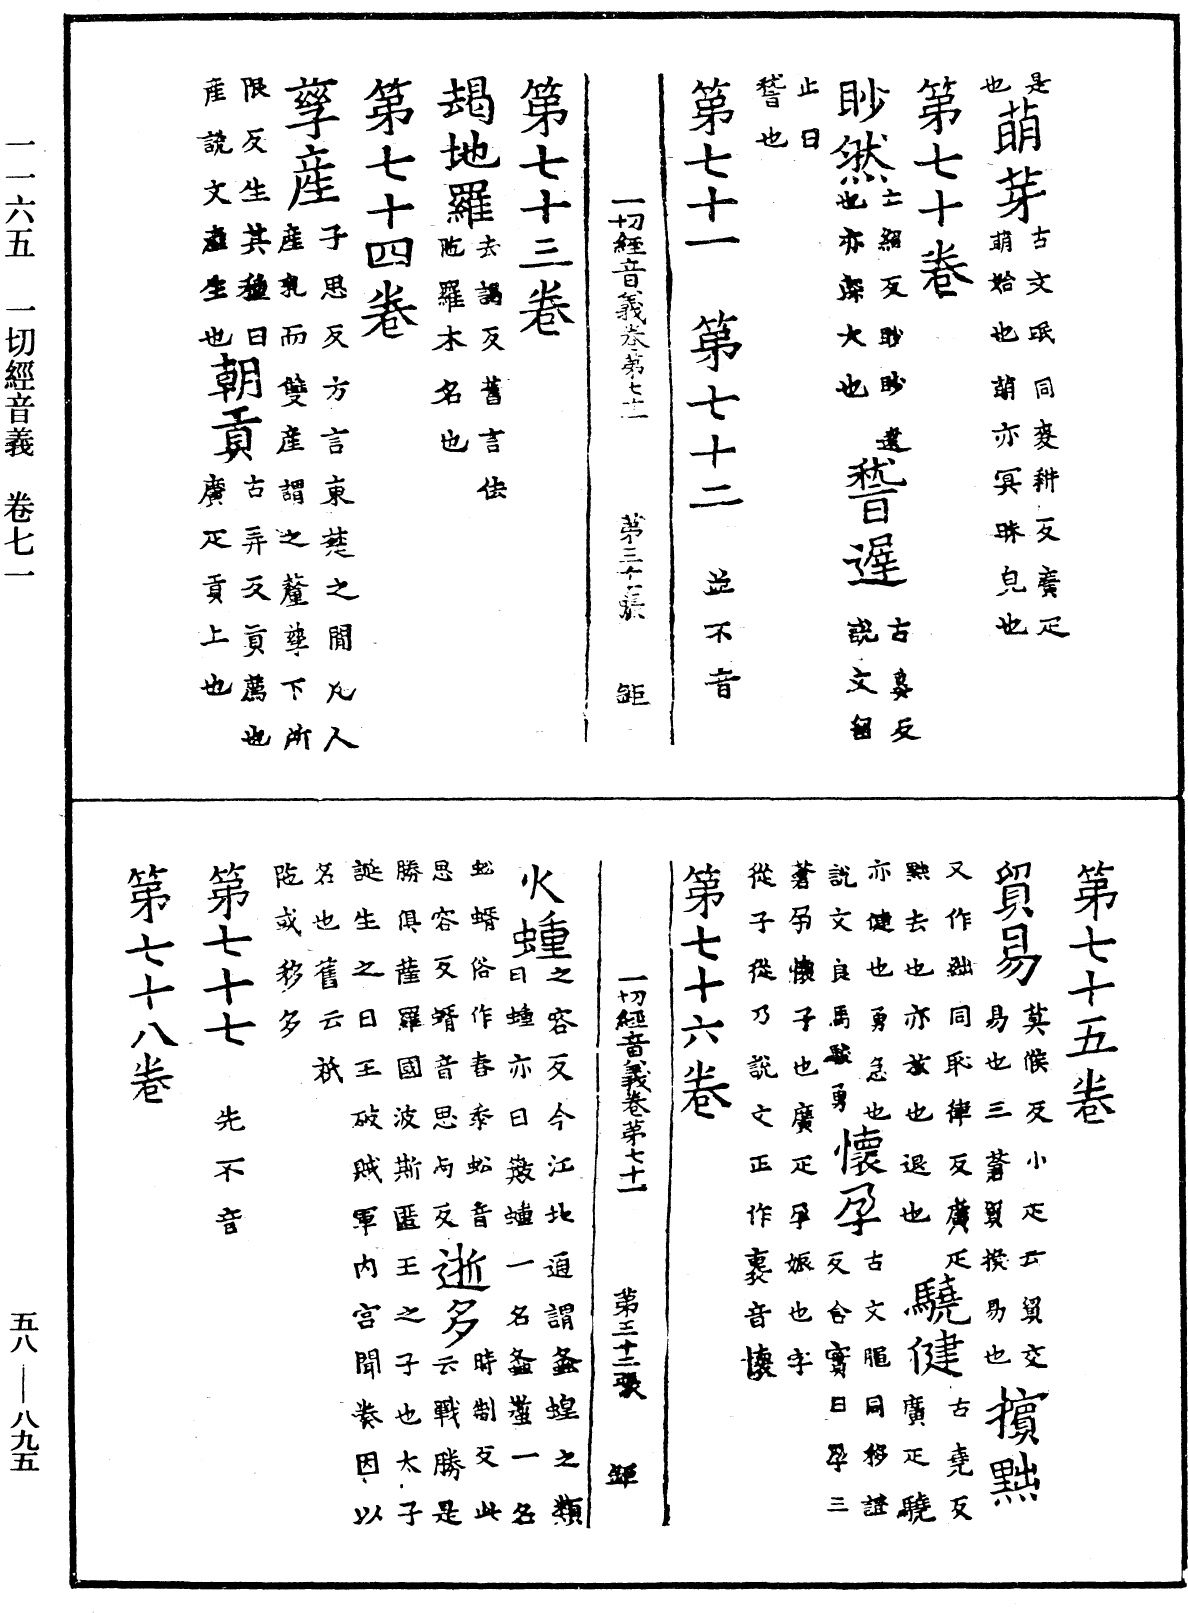 一一六五　一切經音義　卷七一
五八——八九五
是
也萌芽古文氓同麦耕反廣疋
萌始也萌亦冥昧皃也
第七十卷
眇然亡紹反眇眇遠
也亦深大也
稽遲古奚反
說文留
止曰
稽也
第七十一　第七十二　並不音
一切經音義卷第七十一　第三十一張　鉅
第七十三卷
朅地羅去謁反舊言佉
陁羅木名也
第七十四卷
孳産子思反方言東楚之閒凡人
産乳而雙産謂之釐孳下所
限反生其種曰
産說文産生也
朝貢古弄反貢薦也
廣疋貢上也
第七十五卷
貿易莫候反小疋云貿交
易也三蒼貿換易也
擯黜
又作絀同恥律反廣疋
黜去也亦放也退也
驍健古堯反
廣疋驍
亦健也勇急也
說文良馬駿勇
懷孕古文𦜳同移證
反含實曰孕三
蒼孕懷子也廣疋孕娠也字
從子從乃說文正作褱音懷
第七十六卷
一切經音義卷第七十一　第三十二張　鉅
火螽之容反今江北通謂螽蝗之類
曰螽亦曰簸螽一名螽蠜一名
蚣蝑俗作舂黍蚣音
思容反蝑音思与反
逝多時制反此
云戰勝是
勝俱薩羅國波斯匿王之子也太子
誕生之日王破賊軍内宮聞奏因以
名也舊云祇
陁或移多
第七十七　先不音
第七十八卷